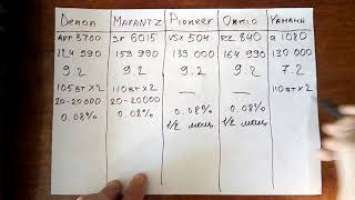 Denon Marantz Pioneer Onkio Yamaha
АРР 3700 Sr 6015 VSX 504 RZ 840 a 1080
124 990 159 990 135 000 164 990 130 000
9.2 9.2 9.2 9.2 7.2
105 вт x 2 110 вт x 2 — — 110 вт x 2
20-20000 20-20000 0.08% 0.08%
0.08% 0.08% 1/2 мощ 1/2 мощ